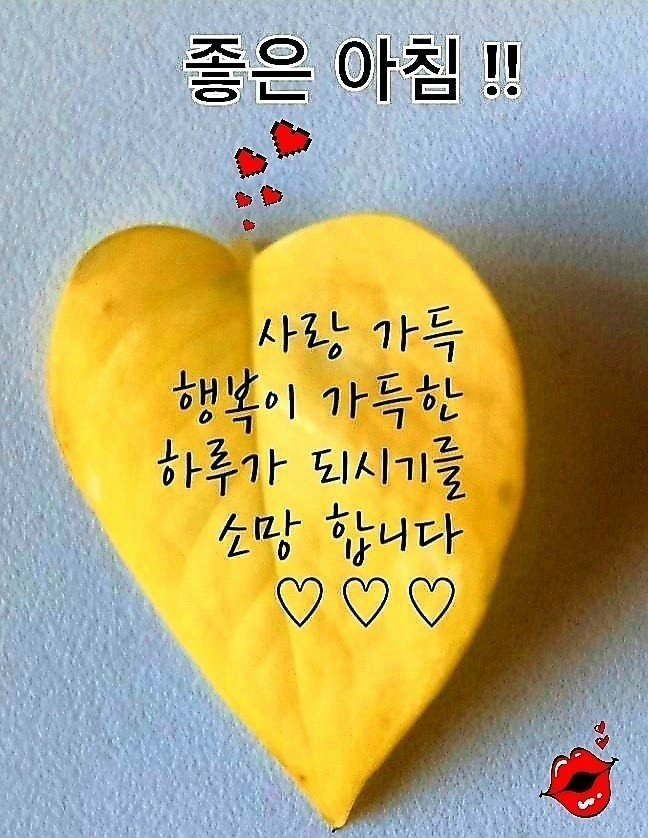 좋은 아침 !!
사랑 가득
행복이 가득한
하루가 되시기를
소망 합니다
♡ ♡ ♡